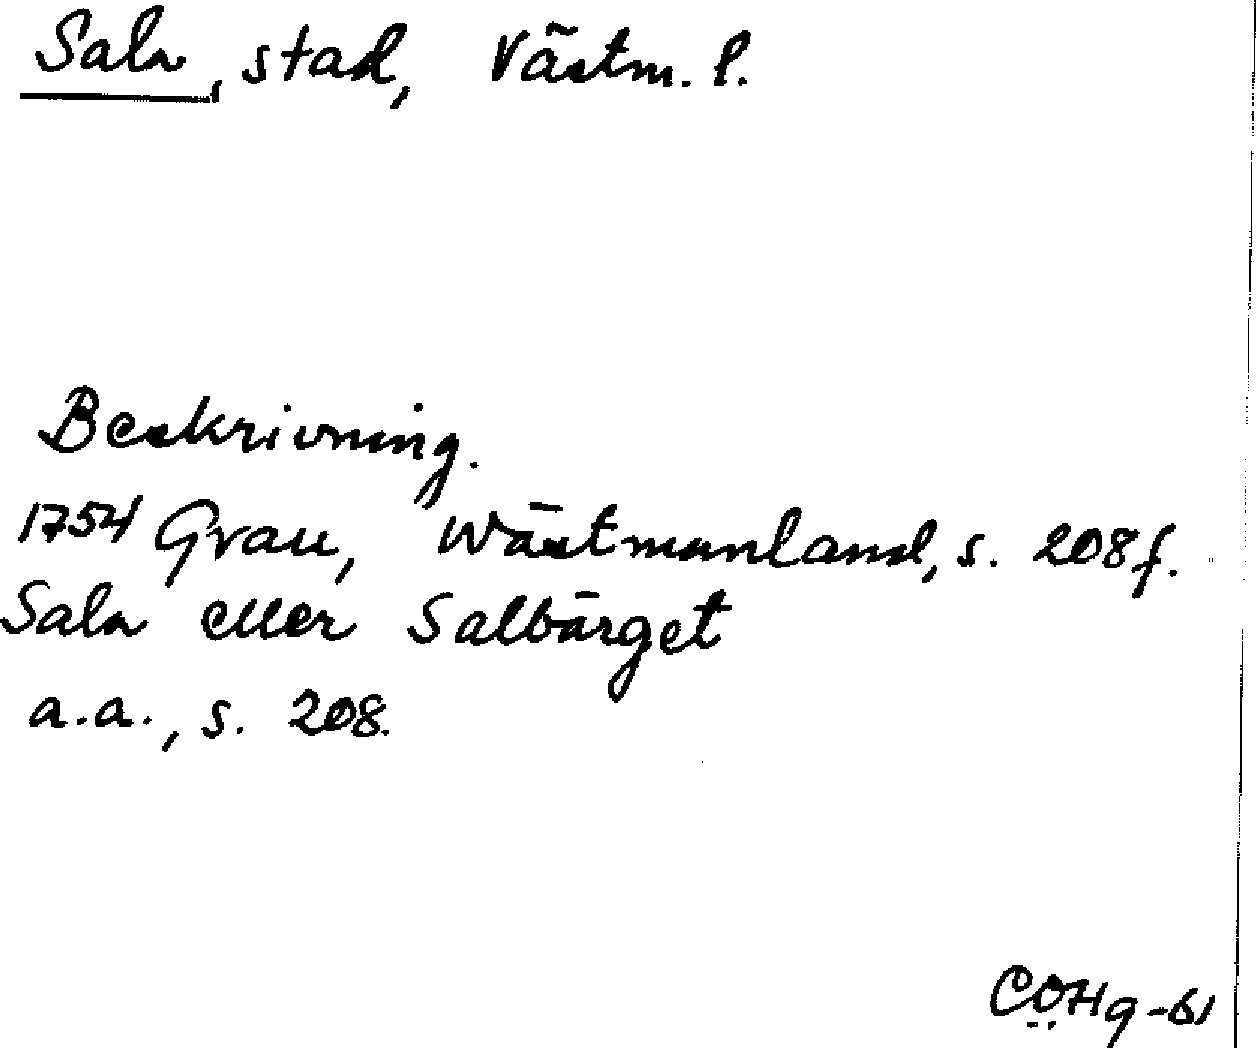 Sala, stad, Västm. l.
Beskrivning.
1754 Grau, Wästmanland, s. 208 f.
Sala eller Salbärget
a.a., s. 208.
CÖHg -61